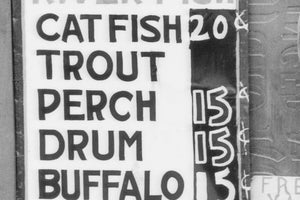 RIVER FISH
CAT FISH 20¢
TROUT
PERCH 15¢
DRUM 15¢
BUFFALO 15¢
FRE